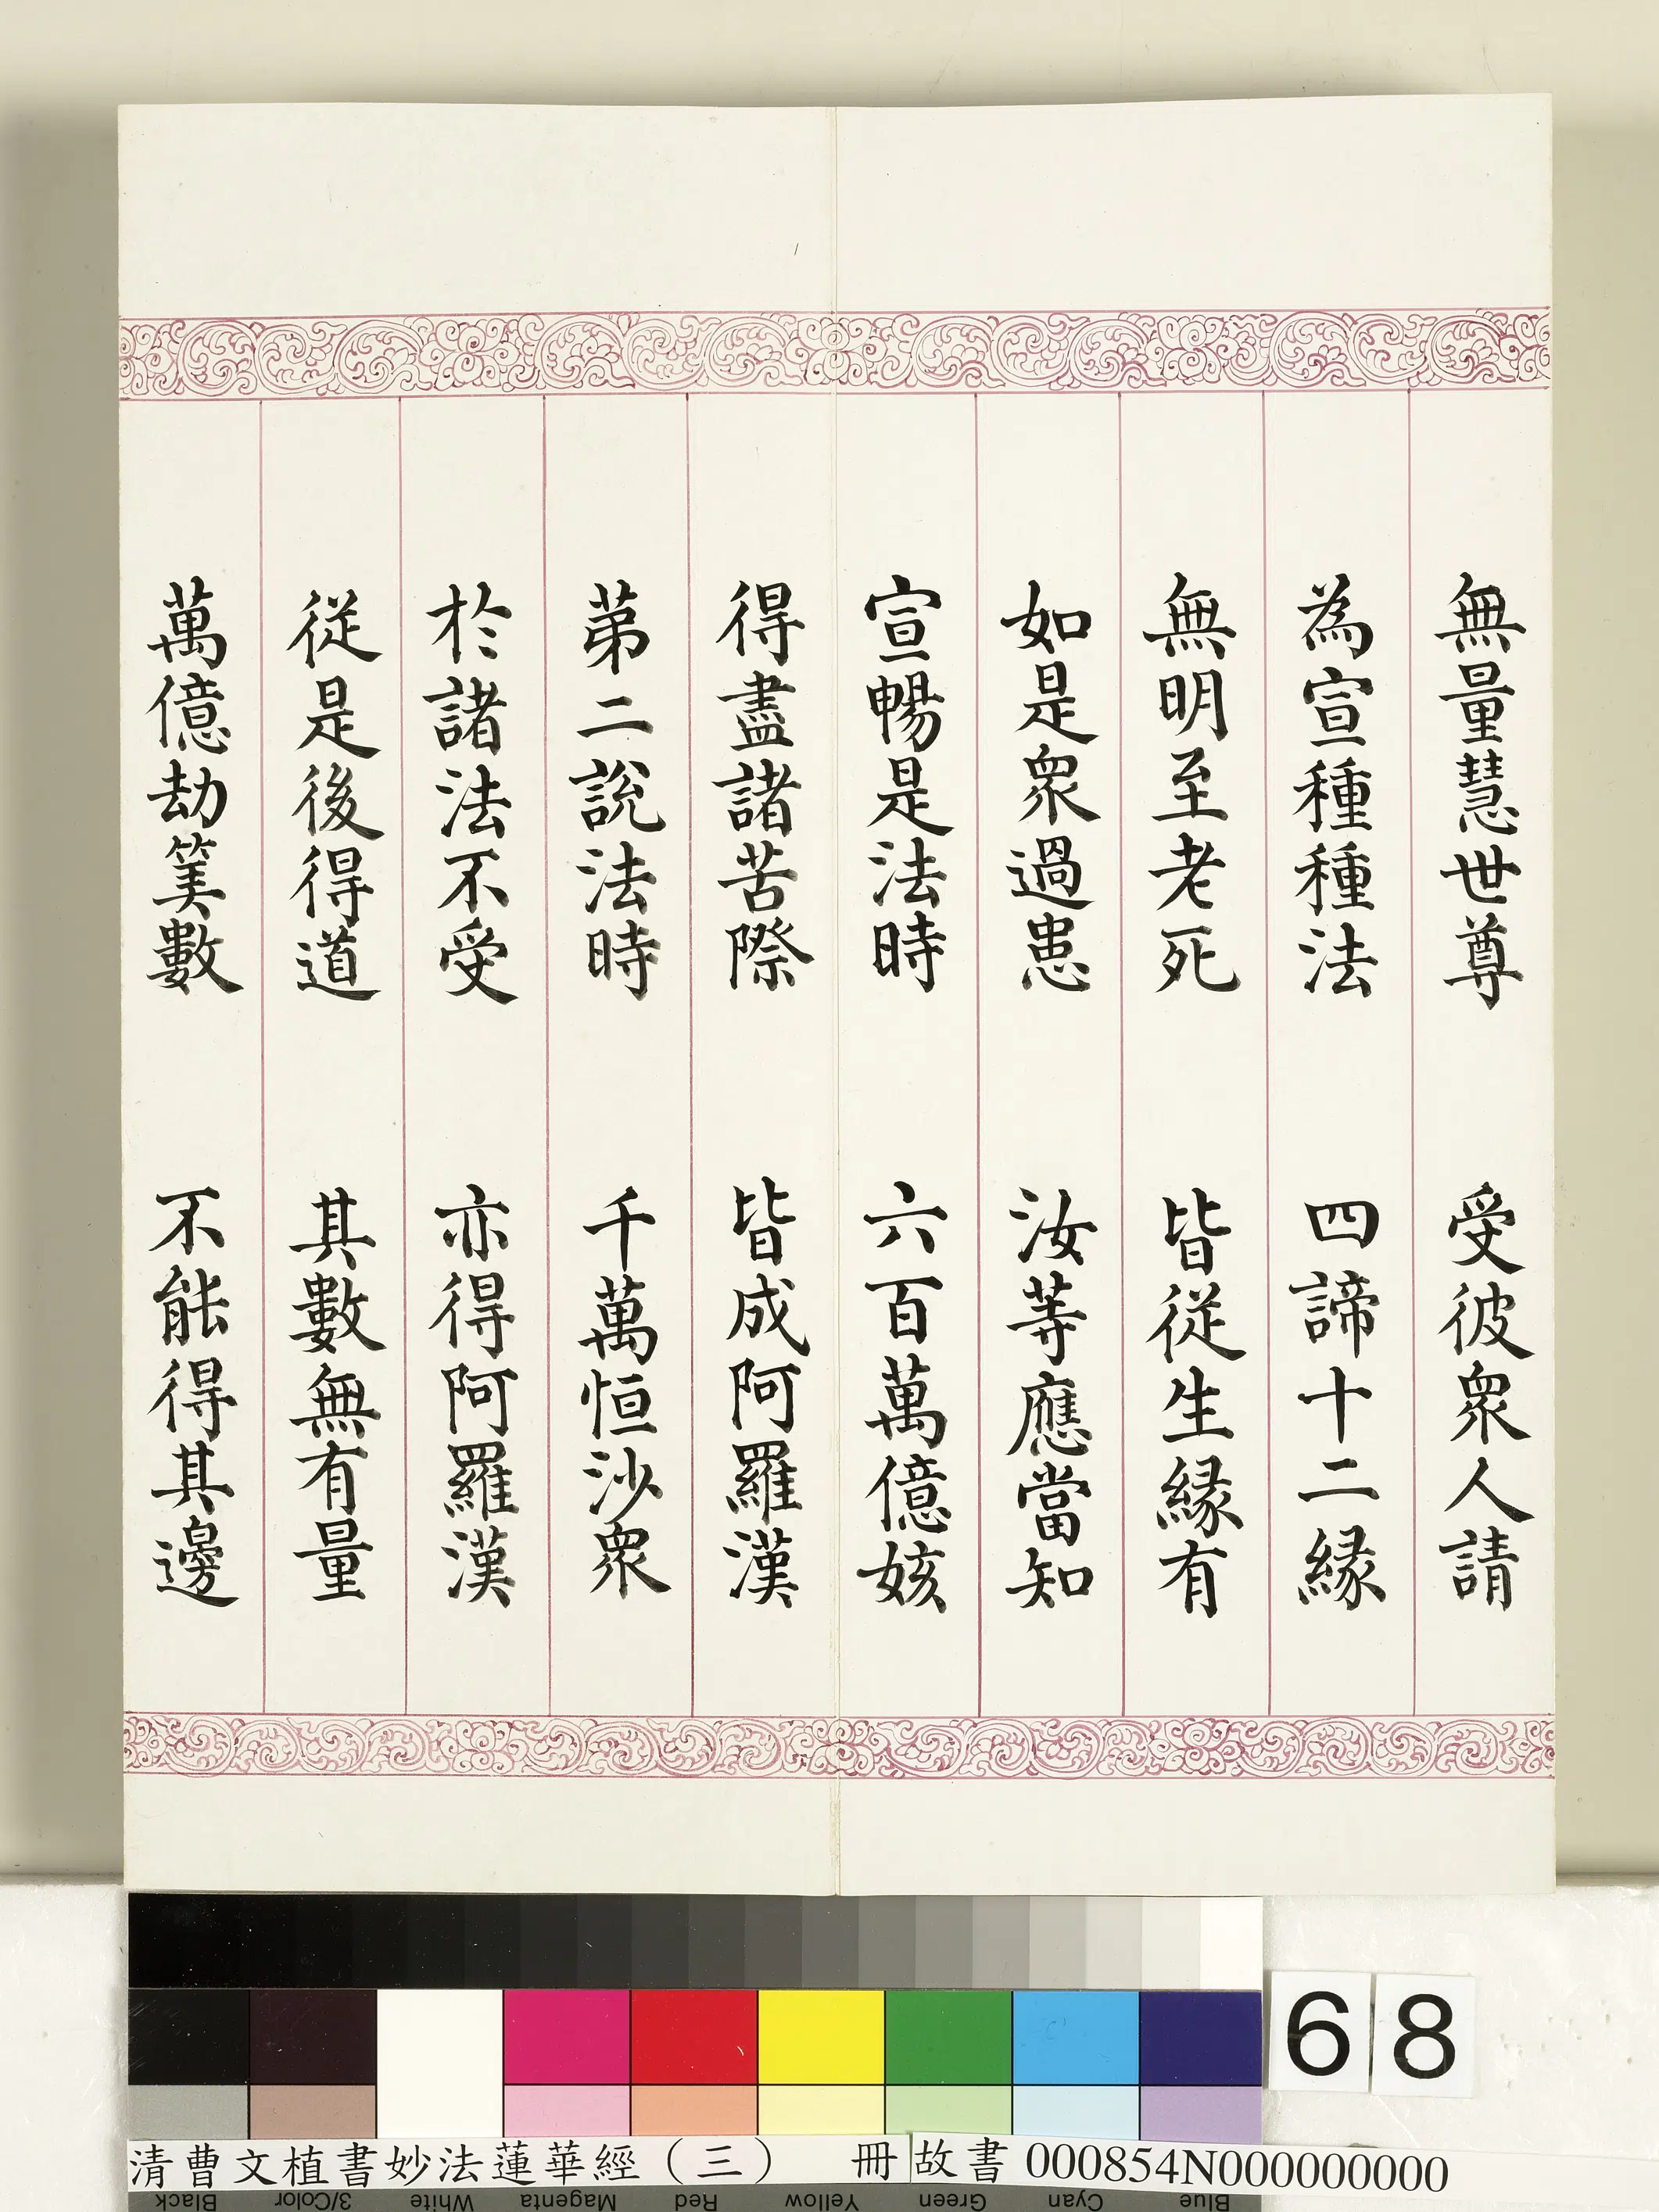 無量慧世尊　受彼衆人請
為宣種種法　四諦十二縁
無明至老死　皆從生縁有
如是衆過患　汝等應當知
宣暢是法時　六百萬億姟
得盡諸苦際　皆成阿羅漢
第二說法時　千萬恒沙衆
於諸法不受　亦得阿羅漢
從是後得道　其數無有量
萬億劫筭數　不能得其邊
68
清曹文植書妙法蓮華經（三）　冊 故書 000854N000000000
Black 3/Color White Magenta Red Yellow Green Cyan Blue